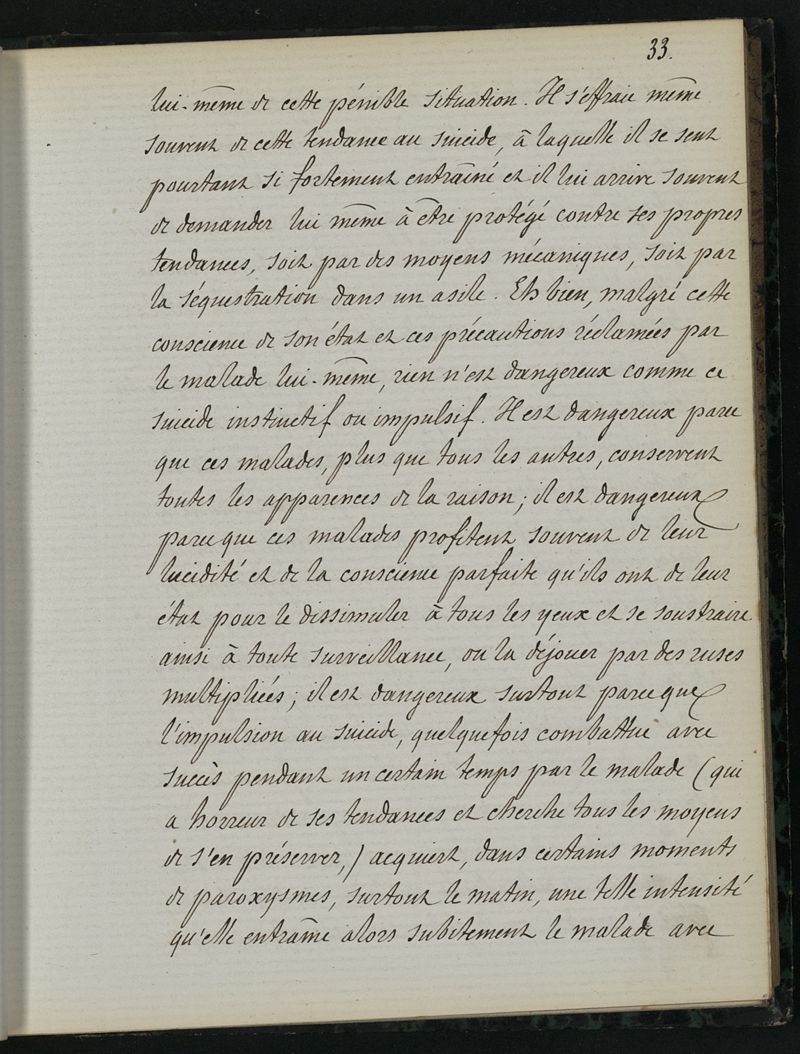 33.
lui-même de cette pénible situation. Il s'effraie même
souvent de cette tendance au suicide, à laquelle il se sent
pourtant si fortement entraîné et il lui arrive souvent
de demander lui même à être protégé contre ses propres
tendances, soit par des moyens mécaniques, soit par
la séquestration dans un asile. Eh bien, malgré cette
conscience de son état et ces précautions réclamées par
le malade lui-même, rien n'est dangereux comme ce
suicide instinctif ou impulsif. Il est dangereux parce
que ces malades, plus que tous les autres, conservent
toutes les apparences de la raison; il est dangereux
parce que ces malades profitent souvent de leur
lucidité et de la conscience parfaite qu'ils ont de leur
état pour le dissimuler à tous les yeux et se soustraire
ainsi à toute surveillance, ou la déjouer par des ruses
multipliées; il est dangereux surtout parce que
l'impulsion au suicide, quelquefois combattue avec
succès pendant un certain temps par le malade (qui
a horreur de ses tendances et cherche tous les moyens
de s'en préserver,) acquiert, dans certains moments
de paroxysmes, surtout le matin, une telle intensité
qu'elle entraîne alors subitement le malade avec